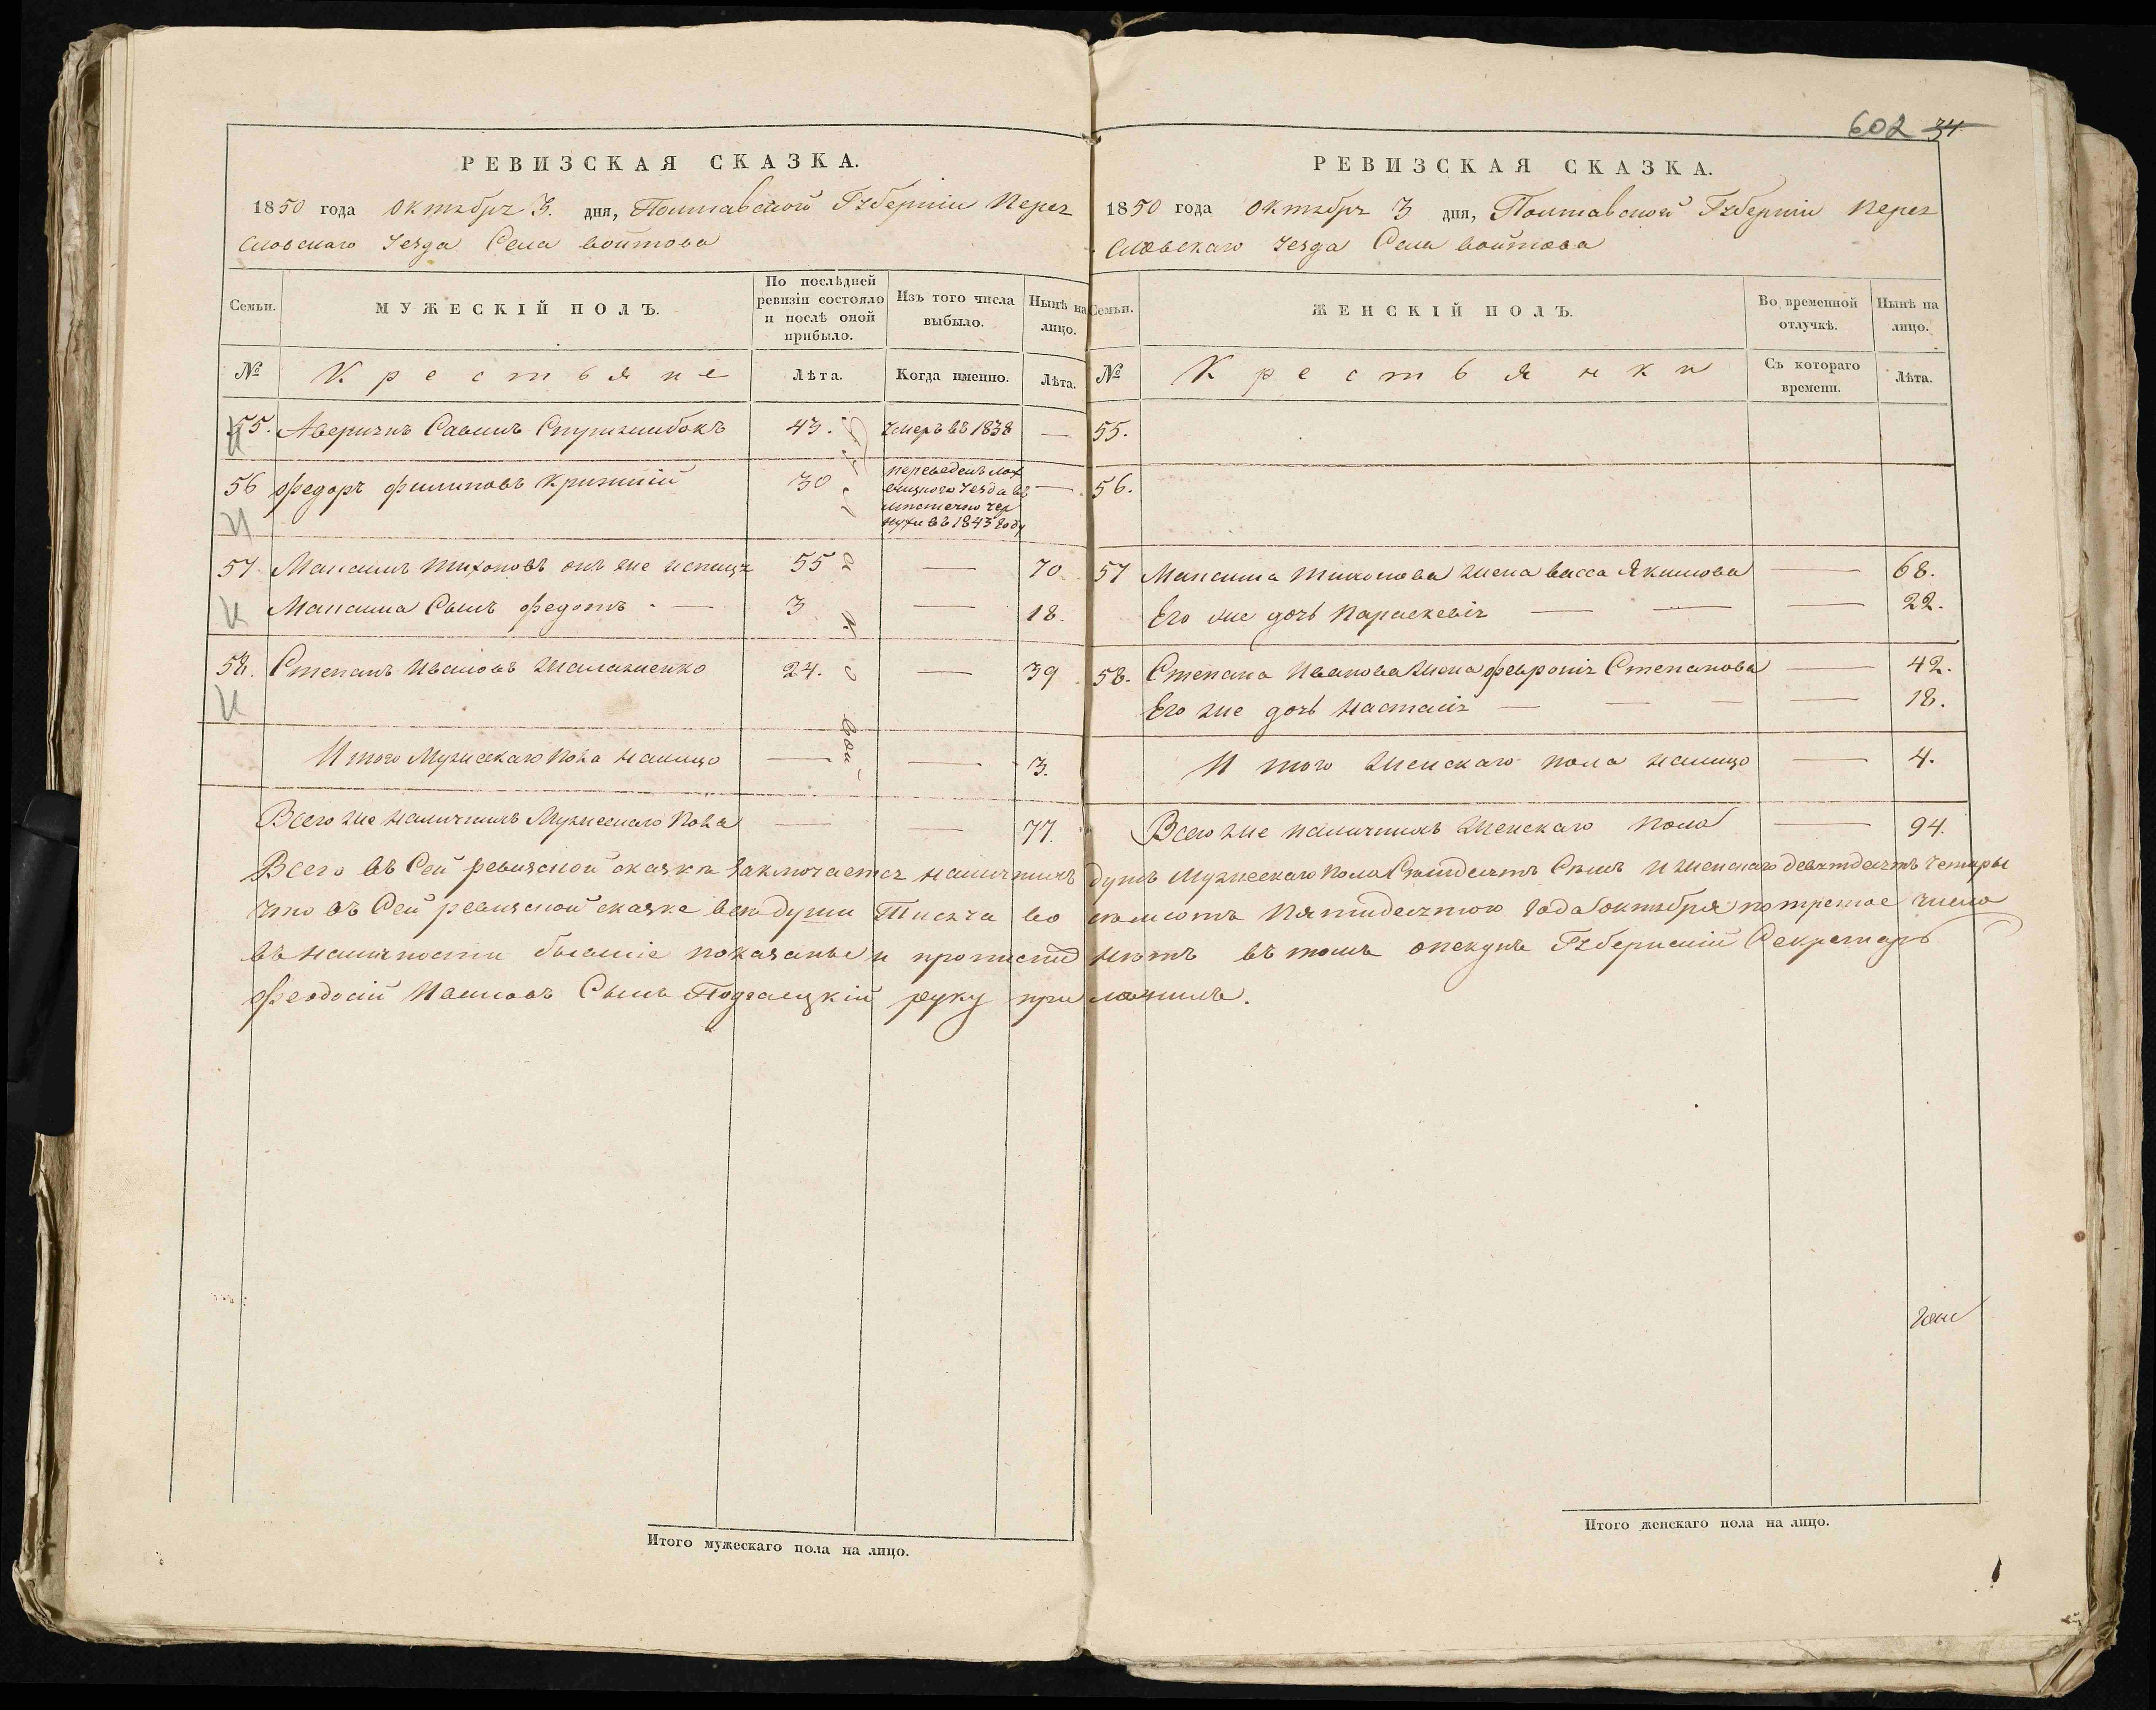 602 34
РЕВИЗСКАЯ СКАЗКА.
1850 года Октября 3. дня, Полтавской Губерніи Перея
словскаго Уезда Села войтова
Семьи.
МУЖЕСКІЙ ПОЛЪ.
По послѣдней ревизіи состояло и послѣ оной прибыло.
Изъ того числа выбыло.
Нынѣ на лицо.
№
Крестьяне
Лѣта.
Когда именно.
Лѣта.
55. Аверкий Савинъ 43. умеръ въ 1838 —
56 Федоръ Филиповъ 30 переведенъ лох
вицкого Уезда въ
местечко чер
нухи въ 1843 году —
57 Максимъ Тихоновъ онъ же 55 — 70.
Максима Сынъ Федотъ — 3 — 18.
58. Степанъ Ивановъ 24. — 39
Итого Мужескаго пола налицо — — 3.
Всего же наличныхъ Мужескаго пола — — 77.
РЕВИЗСКАЯ СКАЗКА.
1850 года Октября 3 дня, Полтавской Губерніи Перея
словскаго Уезда Села войтова
Семьи.
ЖЕНСКІЙ ПОЛЪ.
Во временной отлучкѣ.
Нынѣ на лицо.
№
Крестьянки
Съ котораго времени.
Лѣта.
55.
56.
57 Максима Тихонова жена васса Якимова — 68.
Его же дочь Параскевія — — — 22.
58. Степана Иванова жена Февронія Степанова — 42.
Его же дочь Настасія — — — — 18.
Итого женскаго пола налицо — 4.
Всего же наличныхъ женскаго пола — 94.
Всего въ Сей ревизской сказкѣ заключается наличныхъ душъ Мужескаго пола Семдесятъ Семь и женскаго девятдесятъ четыры
что въ Сей ревизской сказке все души Тисяча во семсотъ пятидесятого года октября по третое число
въ наличности бывшіе показаны и прописныхъ нѣтъ въ томъ опекунъ Губернский Секретарь
Феодосій Ивановъ Сынъ руку приложилъ.
Итого мужескаго пола на лицо.
Итого женскаго пола на лицо.